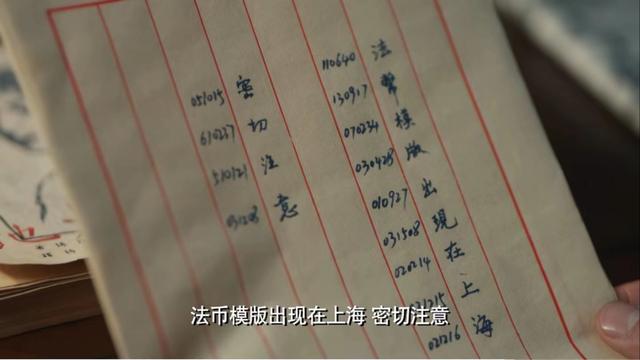 法幣模版出現在上海
110640 130917 070234 030428 010927 031508 020214 021216
密切注意
051015 610227 510121 031208
法币模版出现在上海 密切注意